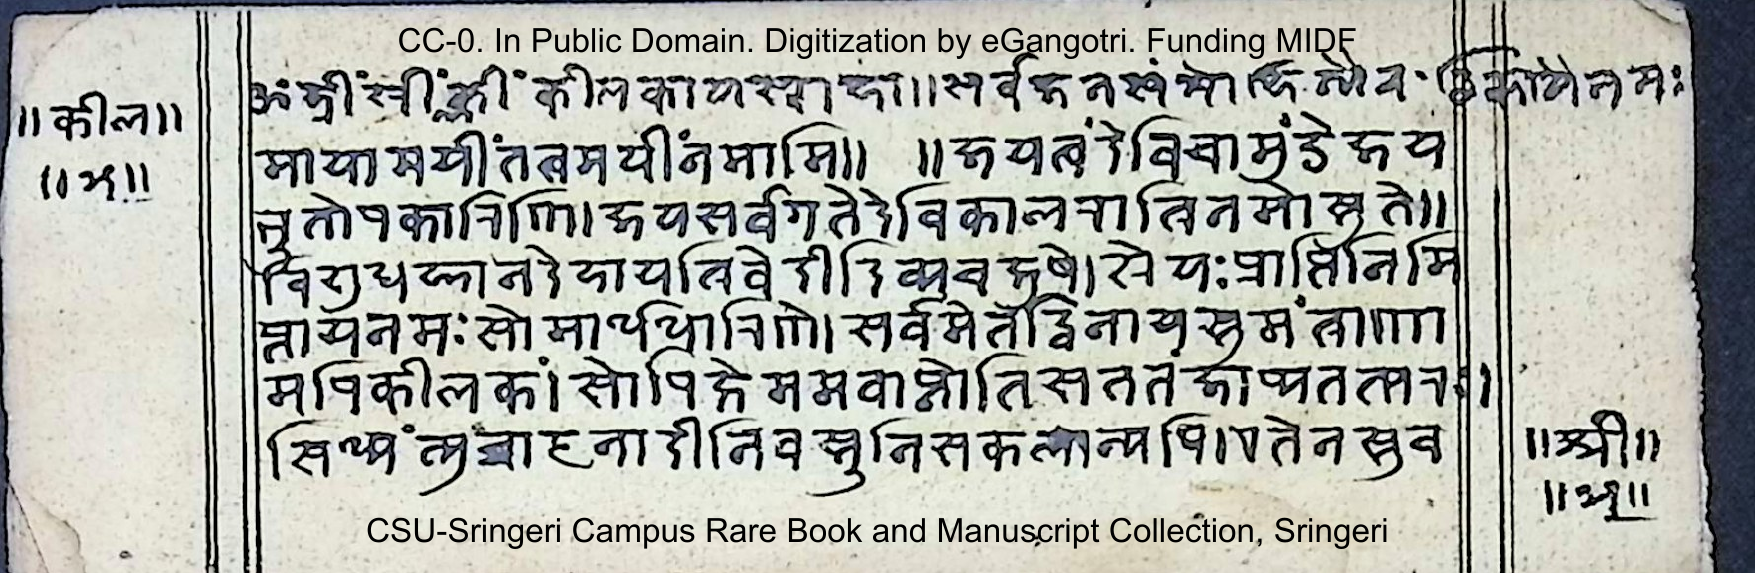 CC-0. In Public Domain. Digitization by eGangotri. Funding MIDF
ॐ ह्रीं स्त्रीं क्लीं कीलकायस्वाहा॥ सर्वजन
॥कील॥
मायामयींतत्वमयींनमामि॥ ॥जयत्वंदेविचामुंडेजय
॥१॥
भूतोपकारिणि।जयसर्वगतेदेविकालरात्रिनमोस्तुते॥
विशुधज्ञानदेहायत्रिवेदीदिव्यचक्षुषे।श्रेयःप्राप्तिनिमि
त्तायनमःसोमार्धधारिणे।सर्वमेतद्विनायस्तुमंत्राणा
मपिकीलकं।सोपिक्षेममवाप्नोतिसततंजाप्यतत्परः।
सिध्यंत्युच्चाटनादीनिवस्तुनिसकलान्यपि।एतेनस्तुव
॥श्री॥
॥१॥
CSU-Sringeri Campus Rare Book and Manuscript Collection, Sringeri